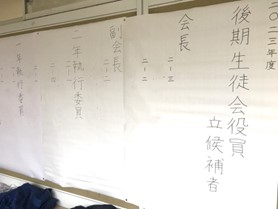 二〇二三年度
後期生徒会役員
立候補者
会長
二-三
二-二
副会長
二-二
二年執行委員
二-一
一年執行委員